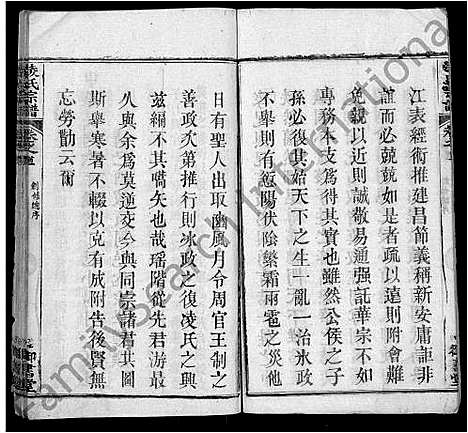 江表經術推建昌節義稱新安庸詎非
誼而必兢兢如是者疏以遠則附會難
免親以近則誠敬易通强託華宗不如
專務本支爲得其實也雖然公侯之子
孫必復其始天下之生一亂一治氷政
不舉則有愆陽伏陰悽霜雨雹之災他
日有聖人出取豳風月令周官王制之
善政次第推行則氷政之復凌氏之興
兹編不其嚆矢也哉瑶階從先君游最
久與余爲莫逆交今與同宗諸君共圖
斯舉寒暑不輟以克有成附告後賢無
忘勞勩云爾
凌氏宗譜
卷之首
創修總序
御書堂
FamilySearch International